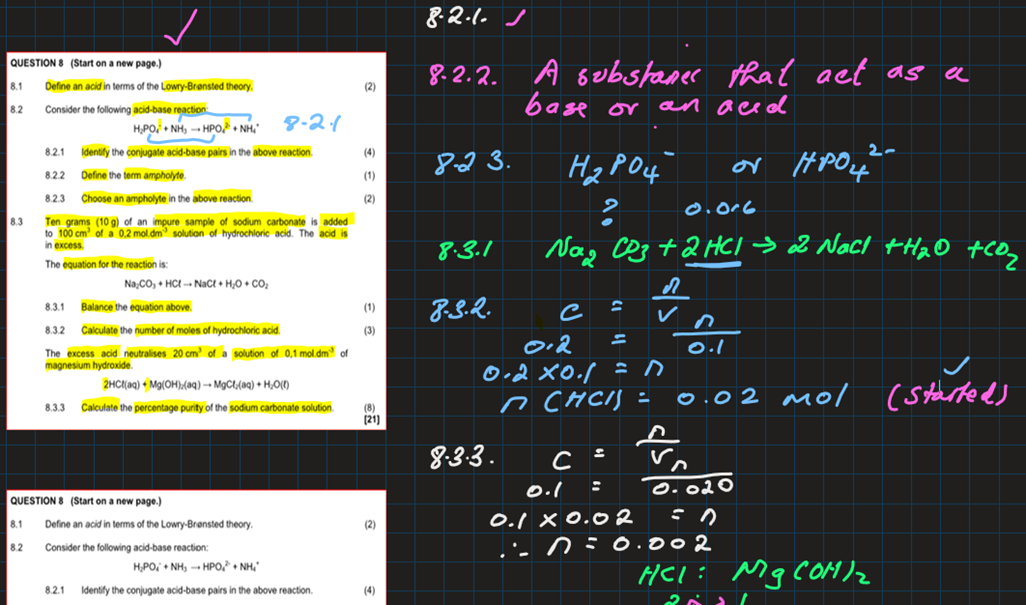 QUESTION 8 (Start on a new page.)
8.1 Define an acid in terms of the Lowry-Brønsted theory. (2)
8.2 Consider the following acid-base reaction:
H₂PO₄⁻ + NH₃ → HPO₄²⁻ + NH₄⁺
8-2-1
8.2.1 Identify the conjugate acid-base pairs in the above reaction. (4)
8.2.2 Define the term ampholyte. (1)
8.2.3 Choose an ampholyte in the above reaction. (2)
8.3 Ten grams (10 g) of an impure sample of sodium carbonate is added
to 100 cm³ of a 0,2 mol.dm⁻³ solution of hydrochloric acid. The acid is
in excess.
The equation for the reaction is:
Na₂CO₃ + HCℓ → NaCℓ + H₂O + CO₂
8.3.1 Balance the equation above. (1)
8.3.2 Calculate the number of moles of hydrochloric acid. (3)
The excess acid neutralises 20 cm³ of a solution of 0,1 mol.dm⁻³ of
magnesium hydroxide.
2HCℓ(aq) + Mg(OH)₂(aq) → MgCℓ₂(aq) + H₂O(ℓ)
8.3.3 Calculate the percentage purity of the sodium carbonate solution. (8)
[21]
QUESTION 8 (Start on a new page.)
8.1 Define an acid in terms of the Lowry-Brønsted theory. (2)
8.2 Consider the following acid-base reaction:
H₂PO₄⁻ + NH₃ → HPO₄²⁻ + NH₄⁺
8.2.1 Identify the conjugate acid-base pairs in the above reaction. (4)
8.2.1. ✓
8.2.2. A substance that act as a
base or an acid
8.2 3. H₂PO₄⁻ or HPO₄²⁻
? 0.016
8.3.1 Na₂CO₃ + 2HCl → 2 NaCl + H₂O + CO₂
8.3.2. C = n/v
0.2 = n/0.1
0.2 × 0.1 = n
n (HCl) = 0.02 mol (started)
8.3.3. C = n/v
0.1 = n/0.020
0.1 × 0.02 = n
∴ n = 0.002
HCl : Mg(OH)₂